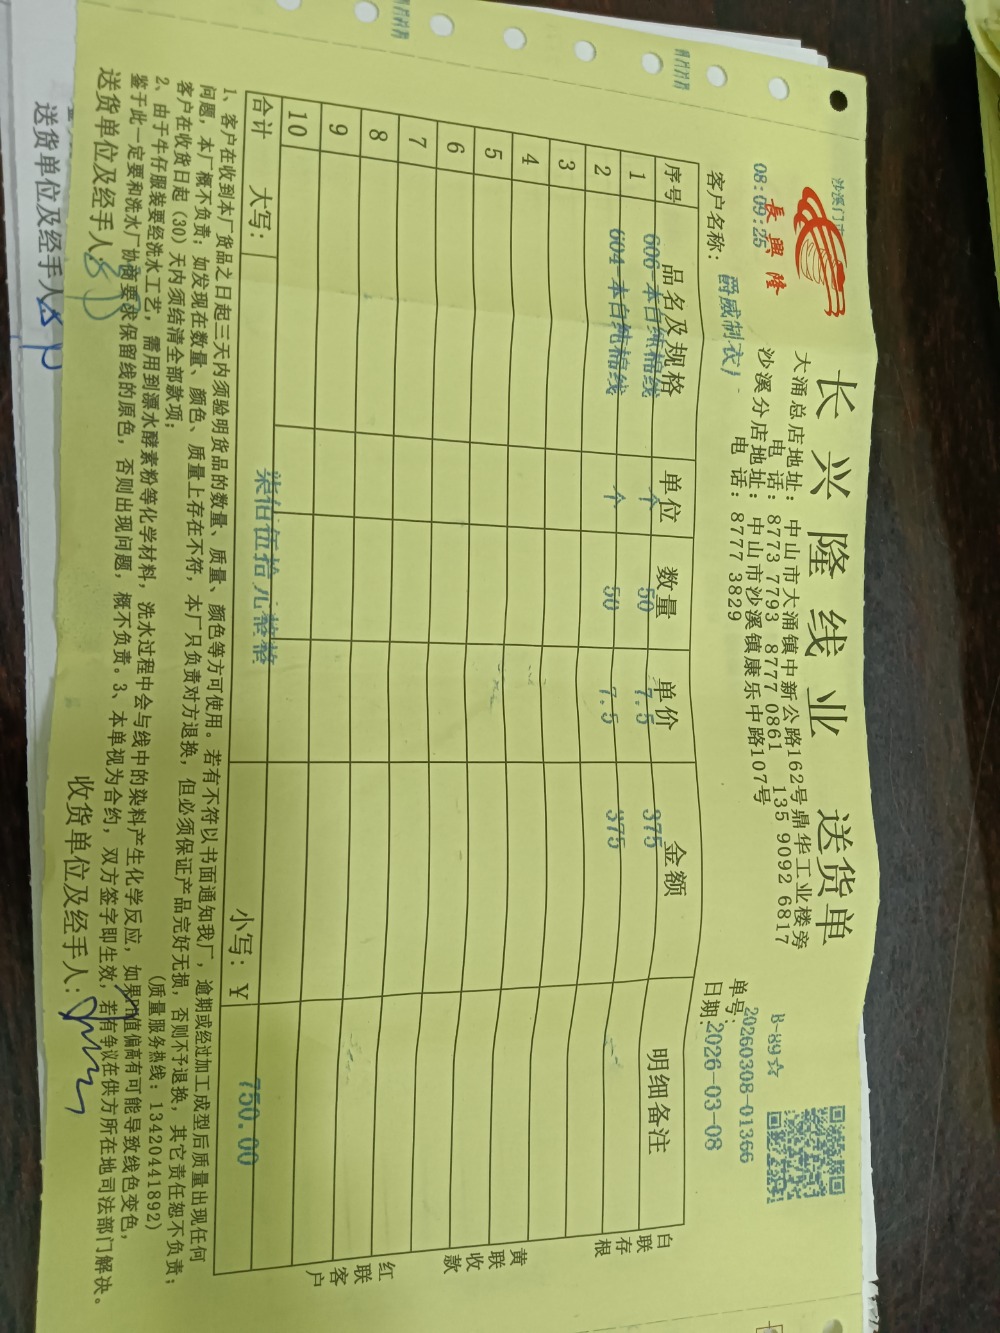 沙溪门市
長興隆
08:09:25
长兴隆线业 送货单
大涌总店地址: 中山市大涌镇中新公路162号鼎华工业楼旁
电 话: 8773 7793 8777 0861 135 9092 6817
沙溪分店地址: 中山市沙溪镇康乐中路107号
电 话: 8777 3829
B-89☆
单号: 20260308-01366
客户名称: 爵威制衣厂
日期: 2026-03-08
序号 品名及规格 单位 数量 单价 金额 明细备注
1 606-本白纯棉线 个 50 7.5 375
2 604-本白纯棉线 个 50 7.5 375
3
4
5
6
7
8
9
10
合计 大写: 柒佰伍拾元整整 小写: ¥ 750.00
白联存根
黄联收款
红联客户
1、客户在收到本厂货品之日起三天内须验明货品的数量、质量、颜色等方可使用。若有不符以书面通知我厂，逾期或经过加工成型后质量出现任何
问题，本厂概不负责；如发现在数量、颜色、质量上存在不符，本厂只负责对方退换，但必须保证产品完好无损，否则不予退换，其它责任恕不负责；
客户在收货日起（30）天内须结清全部款项； （质量服务热线：13420441892）
2、由于牛仔服装要经洗水工艺，需用到漂水酵素粉等化学材料，洗水过程中会与线中的染料产生化学反应，如果PH值偏高有可能导致线色变色，
鉴于此一定要和洗水厂协商要求保留线的原色，否则出现问题，概不负责。3、本单视为合约，双方签字即生效，若有争议在供方所在地司法部门解决。
送货单位及经手人: 收货单位及经手人:
送货单位及经手人